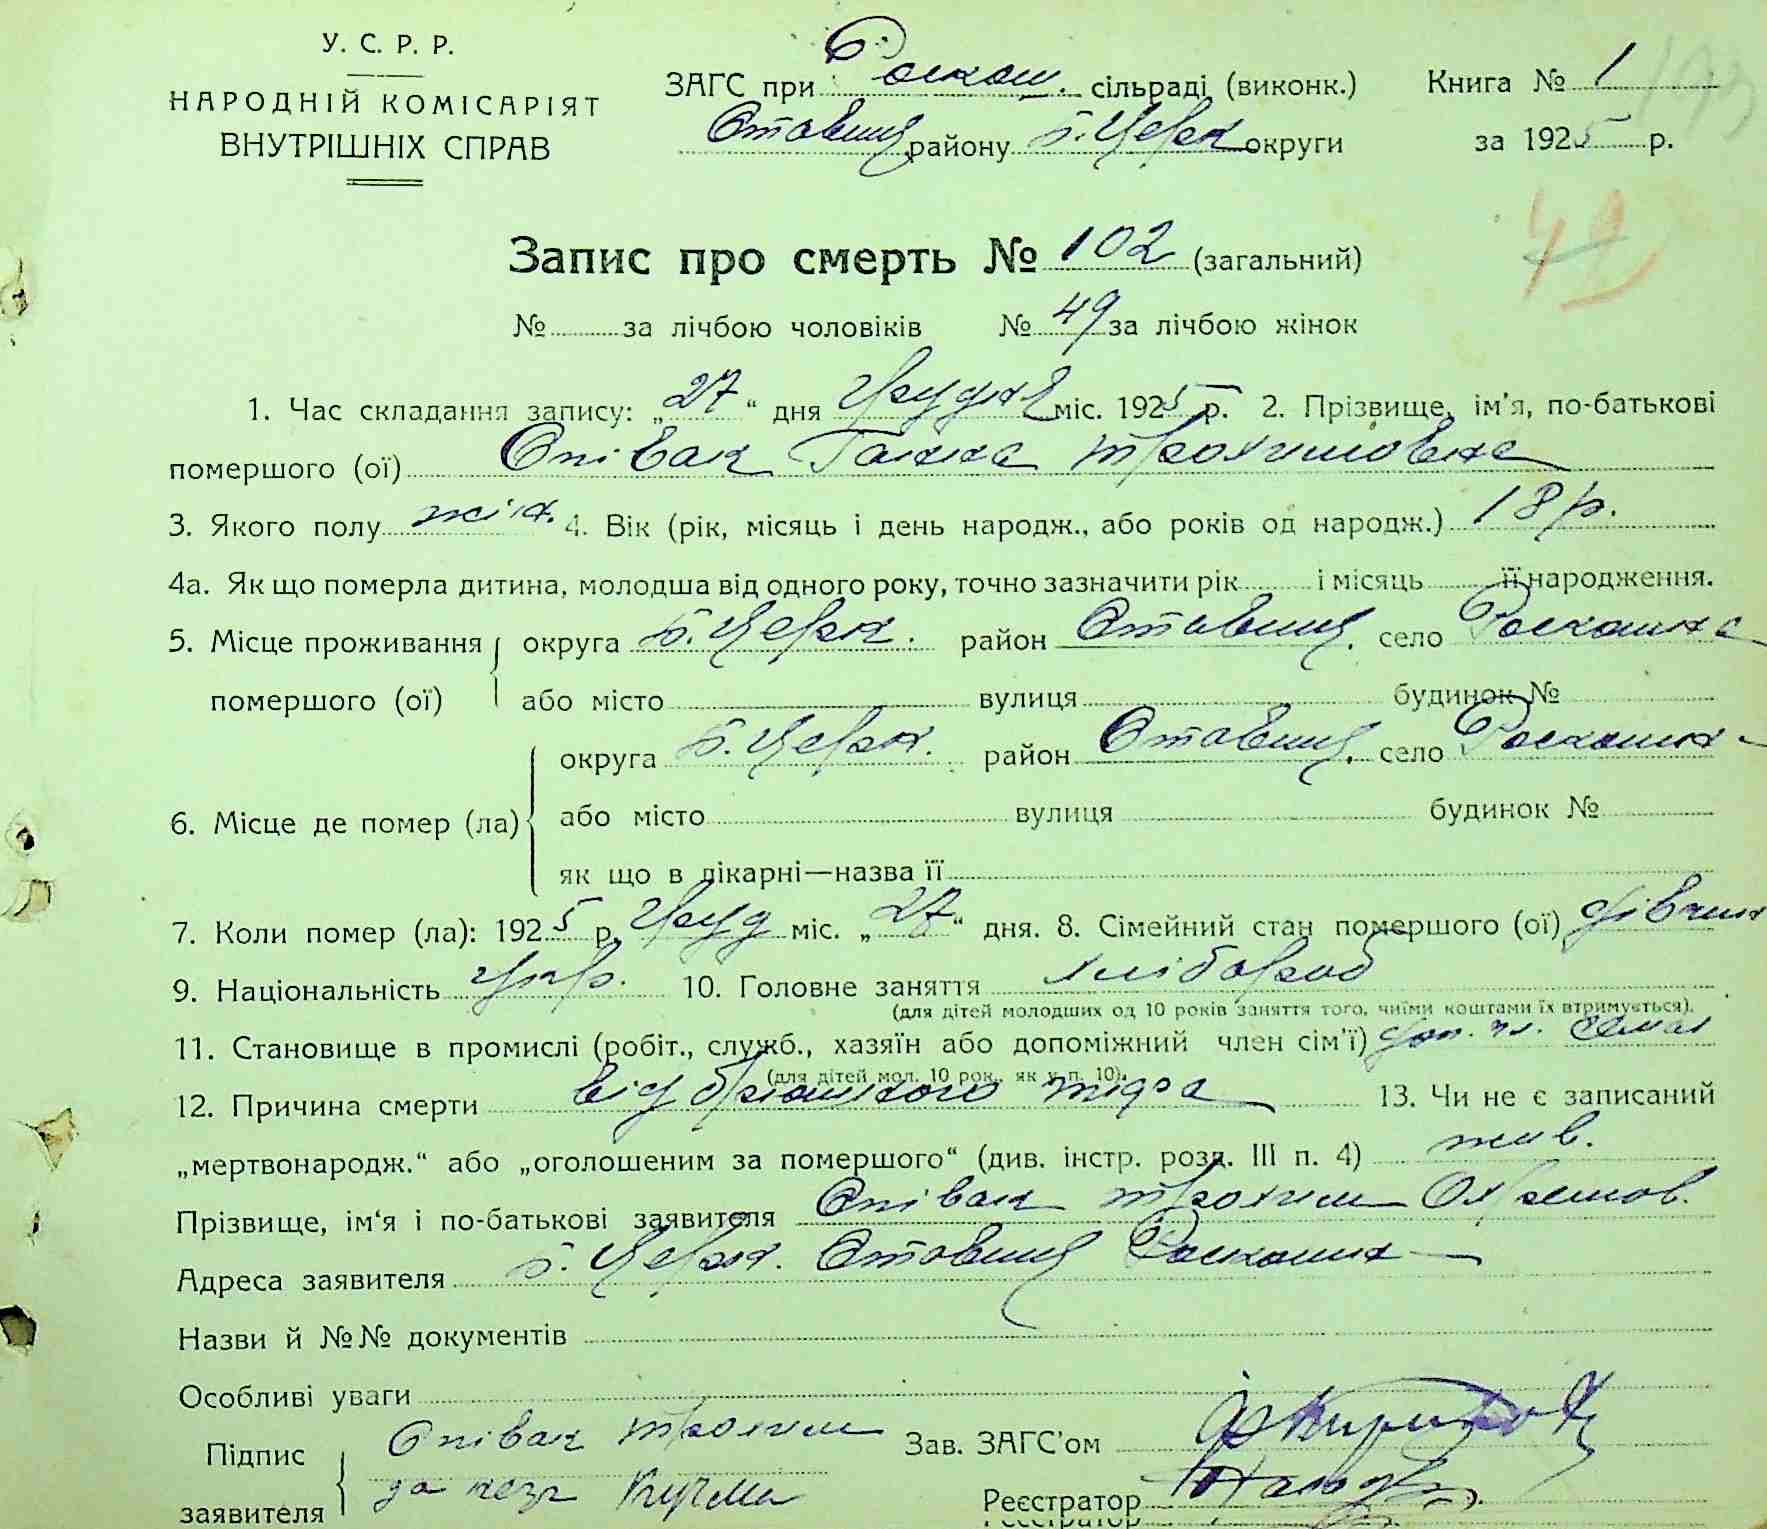 У. С. Р. Р.
НАРОДНІЙ КОМІСАРІЯТ
ВНУТРІШНІХ СПРАВ
ЗАГС при Роскош. сільраді (виконк.)
Ставищ району Б. Церк округи
Книга № 1
за 1925 р.
42
Запис про смерть № 102 (загальний)
№ за лічбою чоловіків № 49 за лічбою жінок
1. Час складання запису: „27“ дня Грудня міс. 1925 р. 2. Прізвище, ім'я, по-батькові
помершого (ої) Співак Ганна Трохимовна
3. Якого полу жін. 4. Вік (рік, місяць і день народж., або років од народж.) 18 р.
4а. Як що померла дитина, молодша від одного року, точно зазначити рік і місяць її народження.
5. Місце проживання округа Б. Церк. район Ставищ. село Роскошна
помершого (ої) або місто вулиця будинок №
округа Б. Церк. район Ставищ. село Роскошн
6. Місце де помер (ла) або місто вулиця будинок №
як що в лікарні—назва її
7. Коли помер (ла): 1925 р. Груд міс. „27“ дня. 8. Сімейний стан помершого (ої) дівчин
9. Національність укр. 10. Головне заняття хлібороб
(для дітей молодших од 10 років заняття того, чиїми коштами їх втримується).
11. Становище в промислі (робіт., служб., хазяїн або допоміжний член сім'ї) доп. чл. семьи
(для дітей мол. 10 рок., як у п. 10).
12. Причина смерти від брюшного тифа 13. Чи не є записаний
„мертвонародж.“ або „оголошеним за помершого“ (див. інстр. розд. III п. 4)
Прізвище, ім'я і по-батькові заявителя Співак Трохим Охремов.
Адреса заявителя Б. Церк. Ставищ Роскошн
Назви й №№ документів
Особливі уваги
Підпис Співак Трохим Зав. ЗАГС'ом
заявителя за незр Кучма Реєстратор